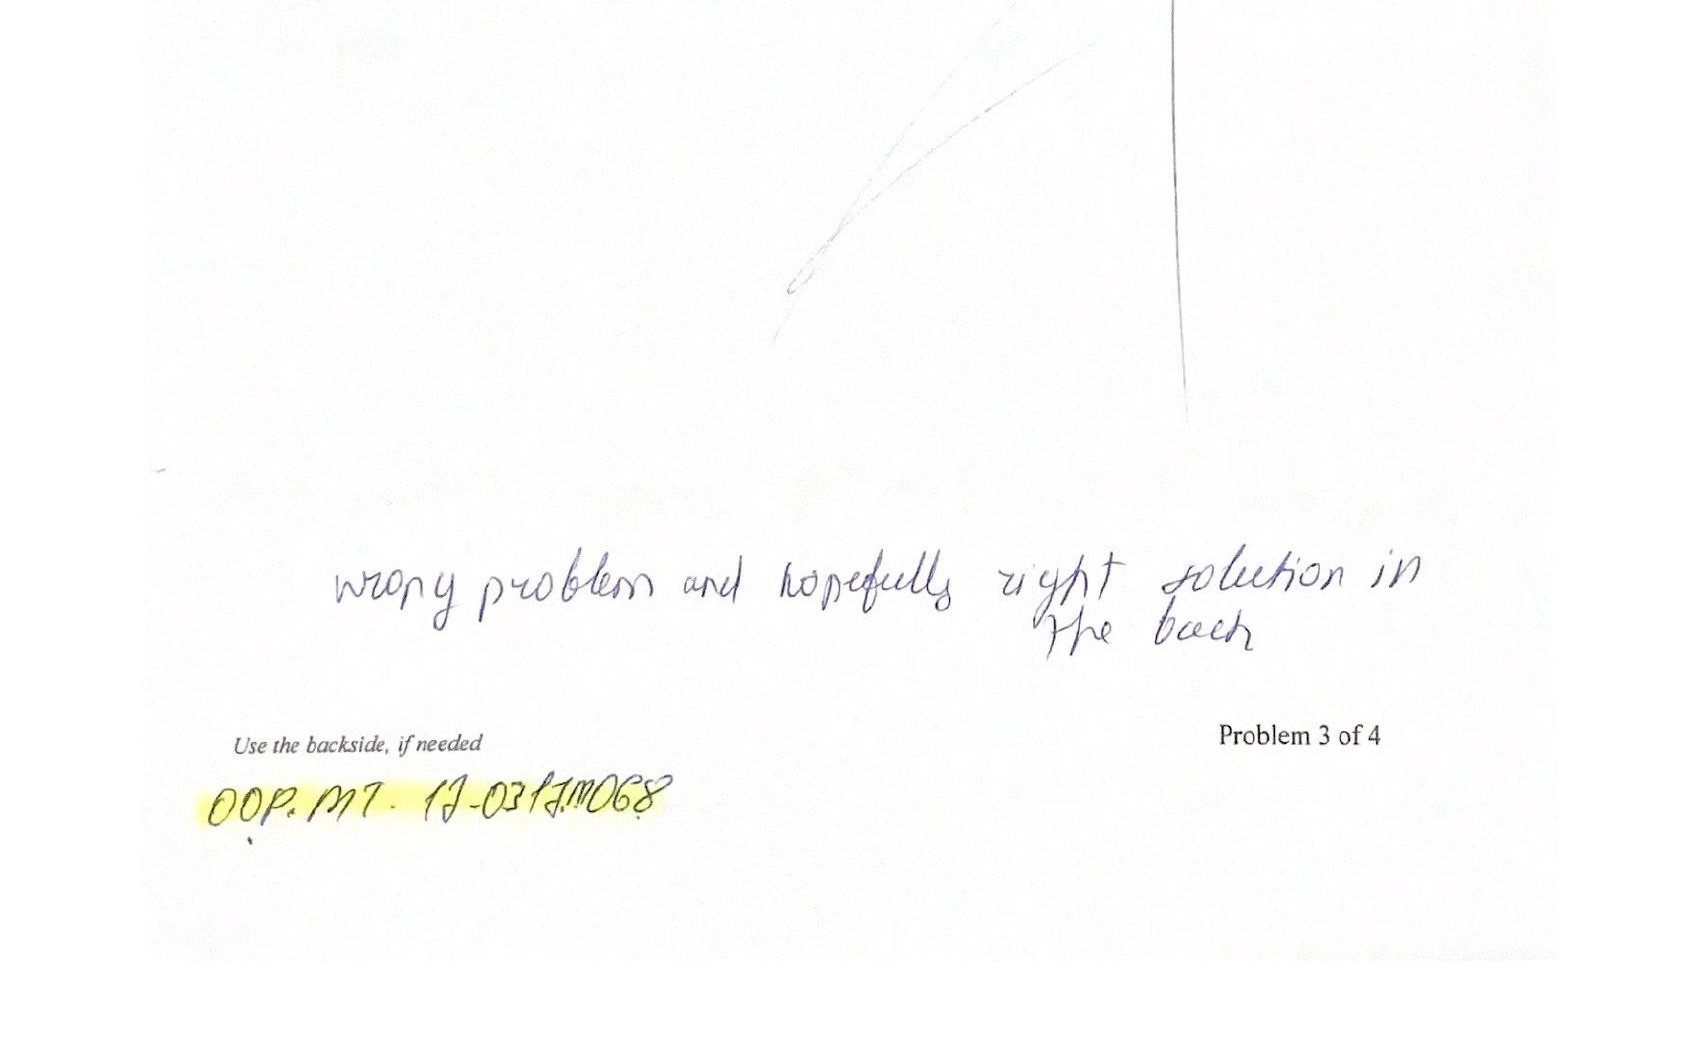 wrong problem and hopefully right solution in
the back
Use the backside, if needed
Problem 3 of 4
OOP. MT.